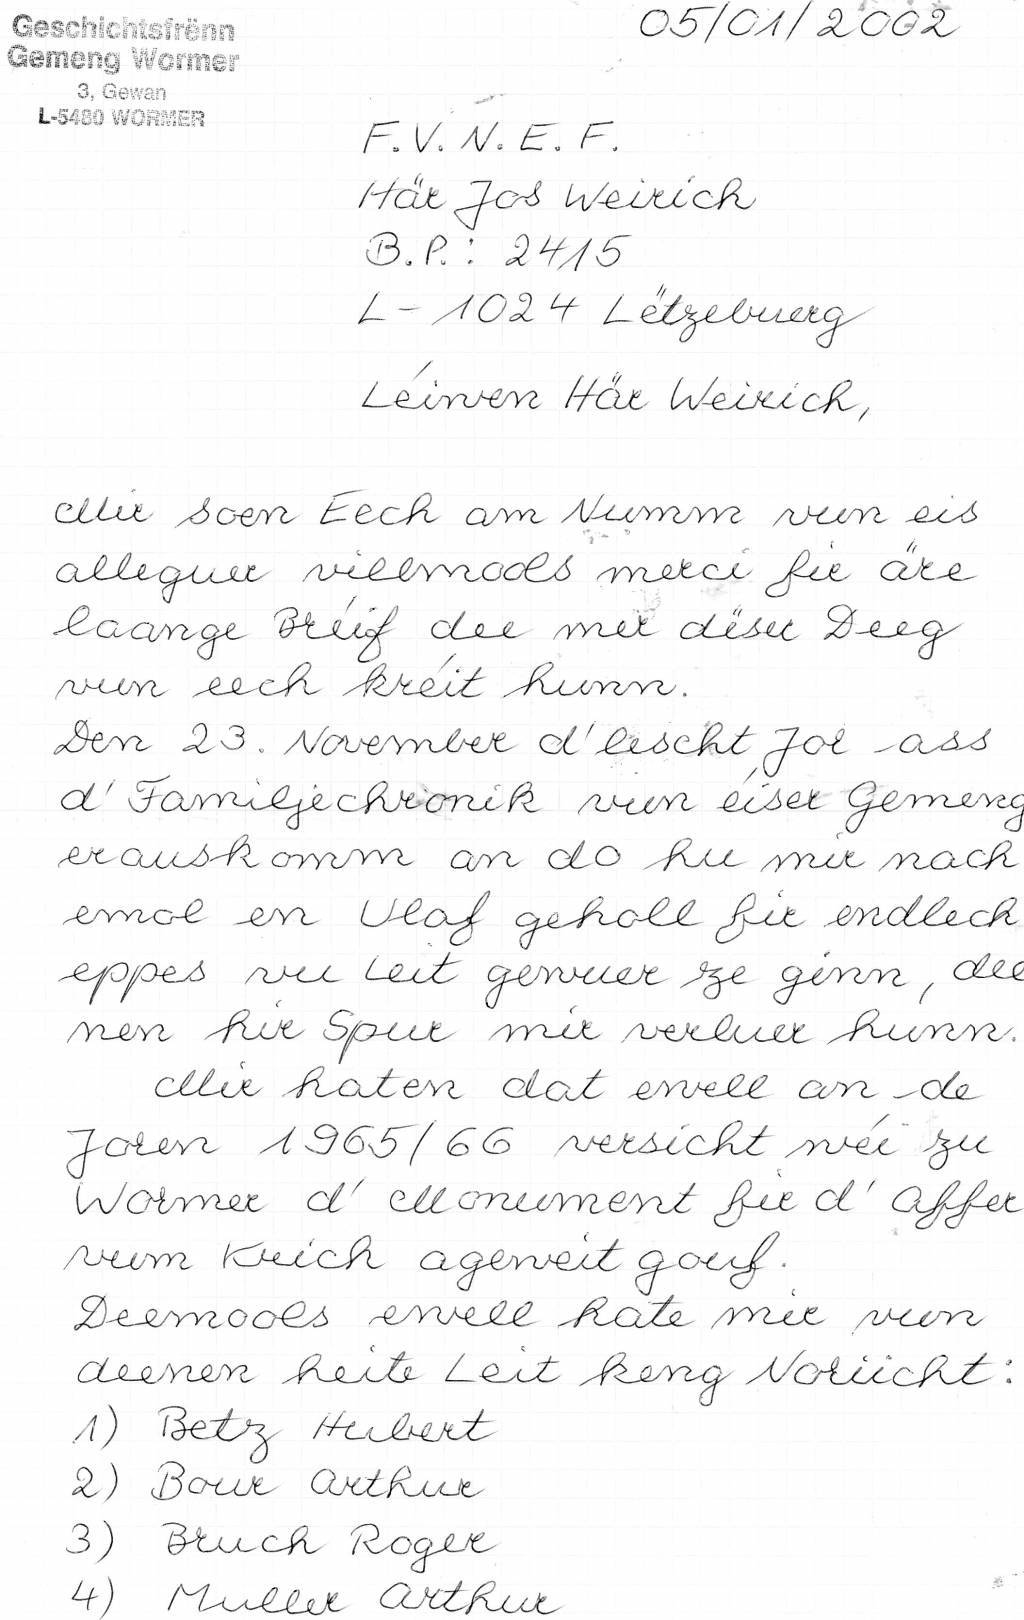 Geschichtsfrënn
Gemeng Wormer
3, Gewan
L-5480 WORMER
05/01/2002
F.V.N.E.F.
Här Jos Weirich
B.P.: 2415
L-1024 Lëtzebuerg
Léiwen Här Weirich,
Mir soen Eech am Numm vun eis
alleguer villmools merci fir äre
laange Bréif dee mer dëser Deeg
vun eech kréit hunn.
Den 23. November d'lescht Jor ass
d'Familjechronik vun eiser Gemeng
erauskomm an do hu mir nach
emol en Ulaf geholl fir endlech
eppes vu Leit gewuer ze ginn, dee
nen hir Spur mir verluer hunn.
Mir haten dat ewell an de
Joren 1965/66 versicht wéi zu
Wormer d'Monument fir d'Affer
vum Krich ageweit gouf.
Deemools ewell hate mir vun
deenen heite Leit keng Noriicht:
1) Betz Hubert
2) Bour Arthur
3) Bruch Roger
4) Muller Arthur